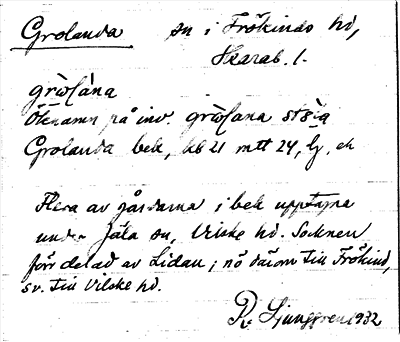 Grolanda sn i Frökinds hd,
Skarab. l.
grɷ̀ſána
Öknamn på inv. grɷ̀ſana
Grolanda bek, kb 21 mtt 24, ly, ek
Flera av gårdarna i bek upptagna
under Jäla sn, Vilske hd. Socknen
förr delad av Lidan; nö därom till Frökind,
sv. till Vilske hd.
R. Ljunggren 1932